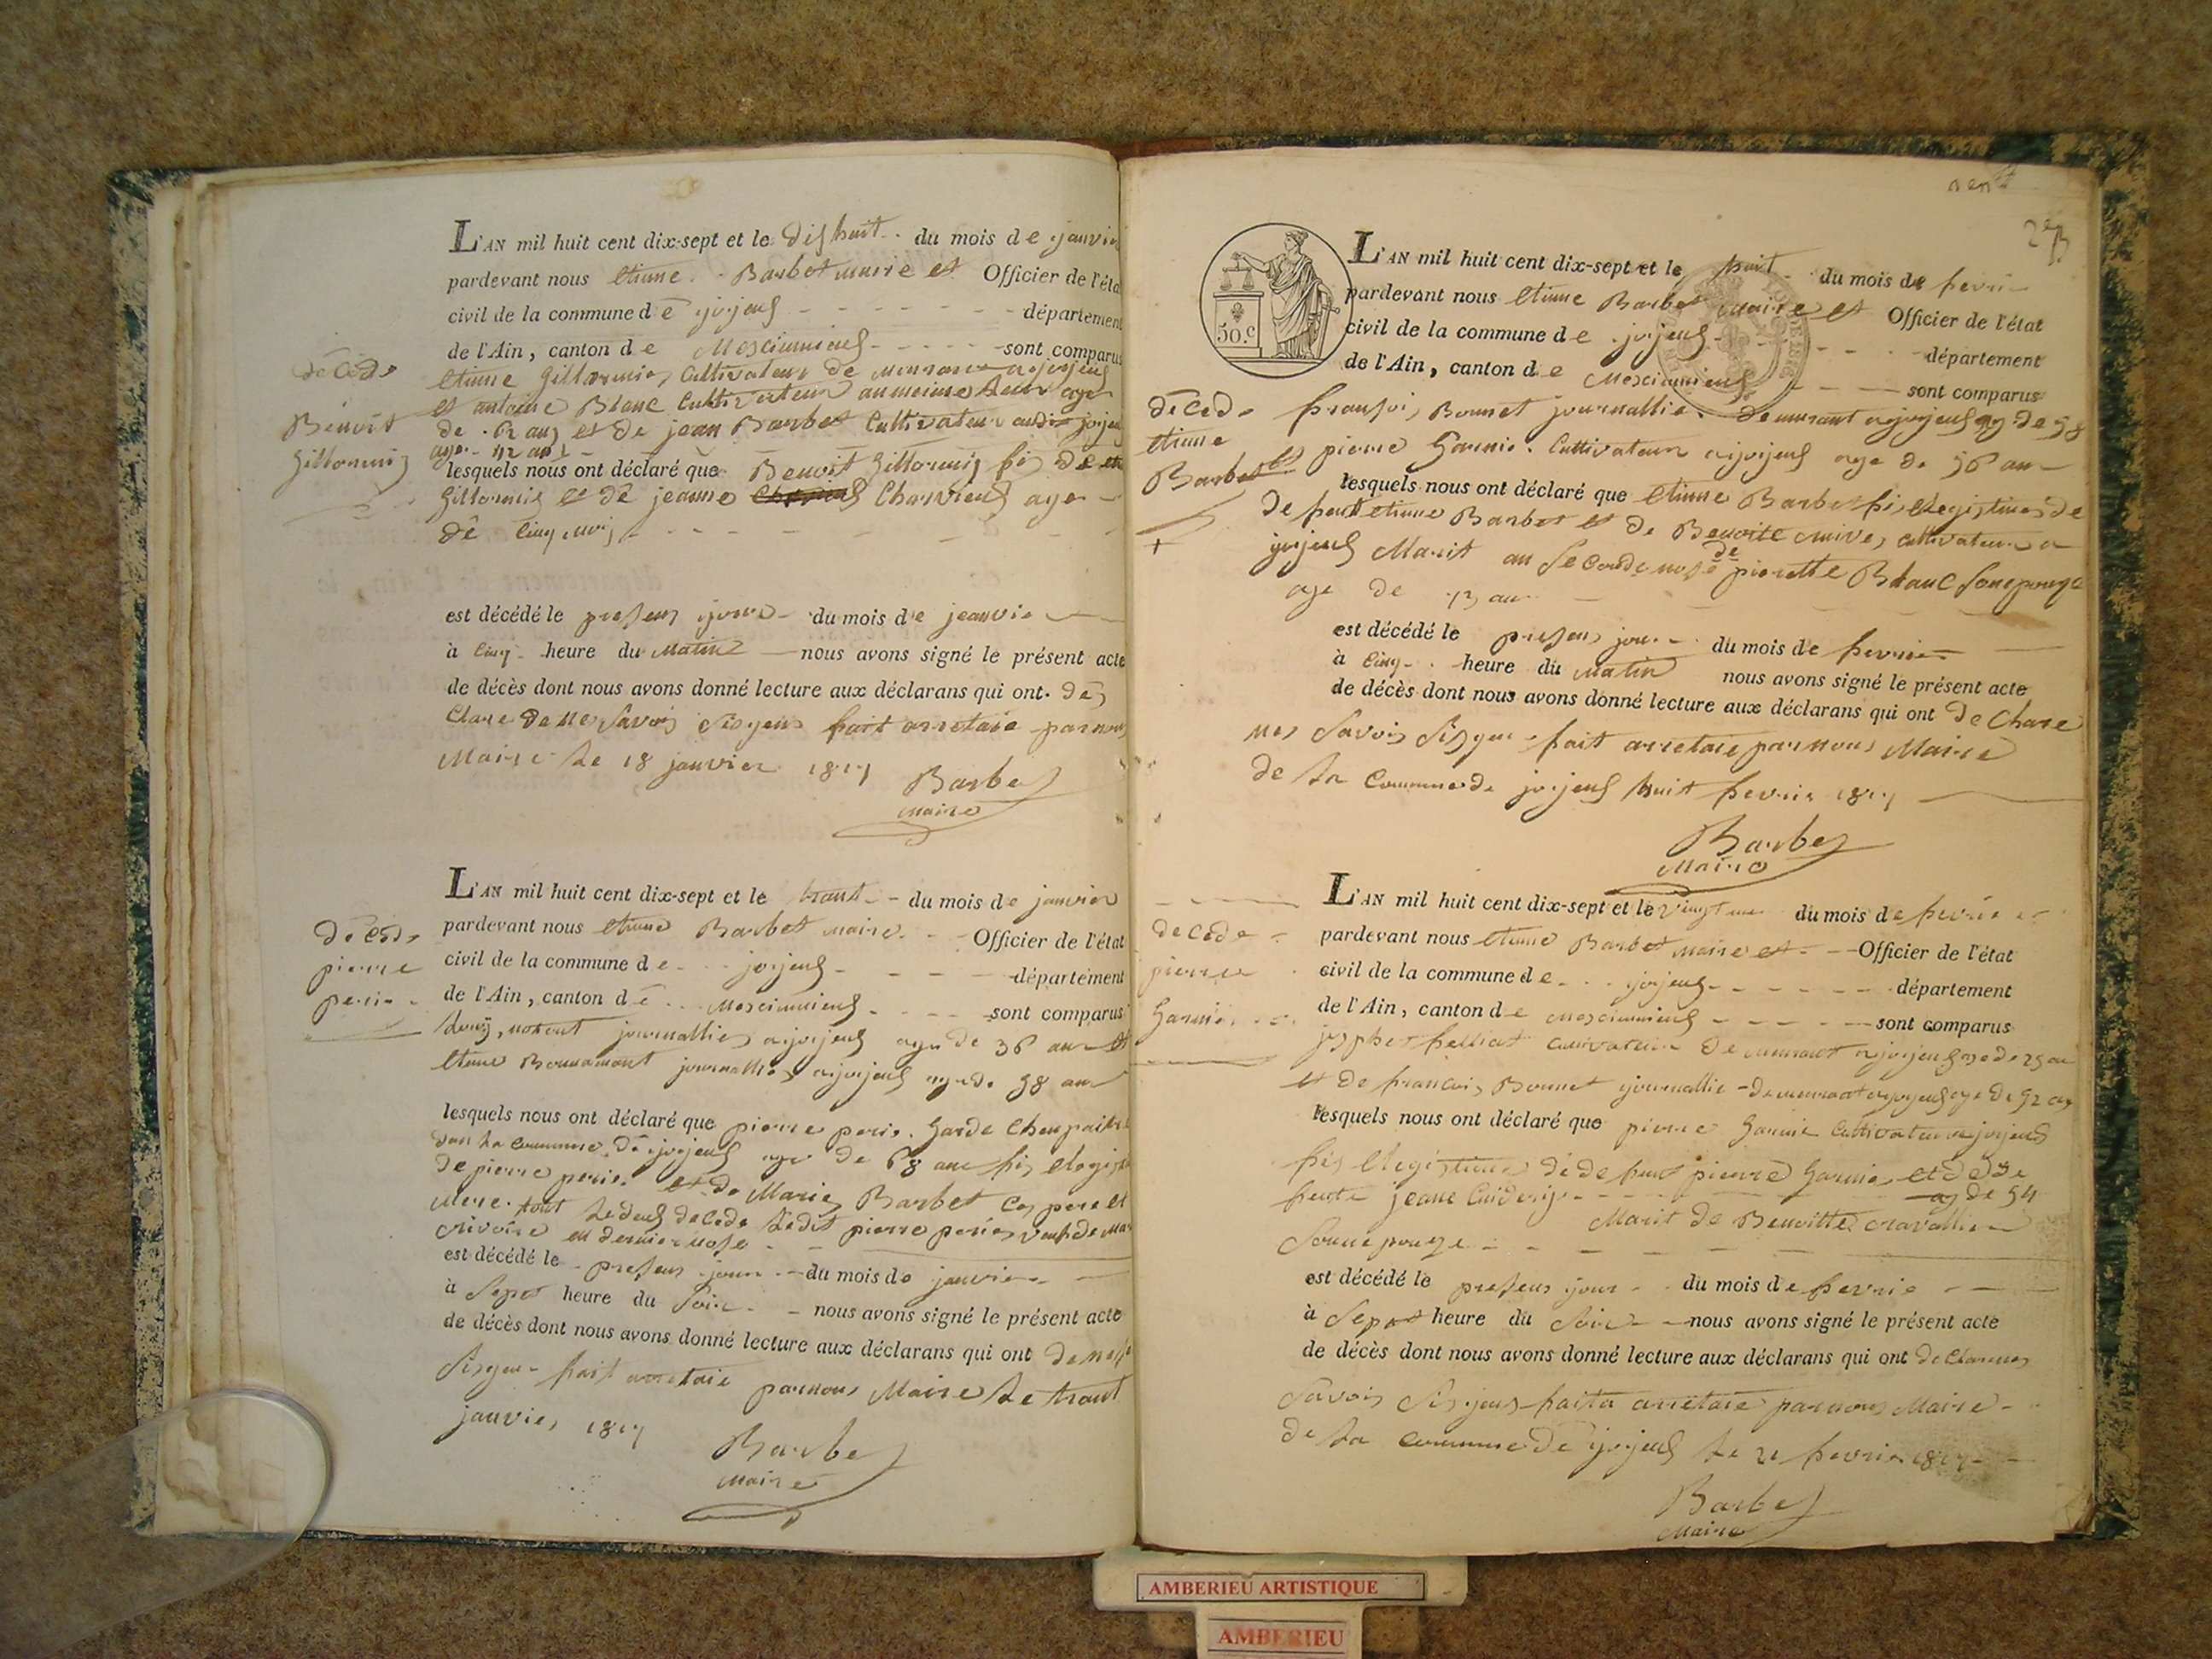 L'AN mil huit cent dix-sept et le dishuit du mois de janvie
pardevant nous etiene Barbet maire et Officier de l'éta
civil de la commune de joyeus département
de l'Ain, canton de Mesciumieus sont comparus
décéde
etiene Gillormin Cultivateur
et antoine Blanc Cultivateur au meime age
de 62 ans et de jean Barbet Cultivateur audit joyeu
Benoit
Gillormin
age 42 ans
lesquels nous ont déclaré que Benoit Gillormin fis de
Gillormin et de jeanne Charvieus age
de cinq mois
est décédé le presens jour du mois de jeanvie
à cinq heure du Matin nous avons signé le présent acte
de décès dont nous avons donné lecture aux déclarans qui ont de
Clare de ne savoir sisgens fait arretaie par nous
Maire le 18 janvier 1817
Barbe
maire
L'AN mil huit cent dix-sept et le trant du mois de janvier
pardevant nous etiene Barbet maire Officier de l'état
civil de la commune de joyeus département
de l'Ain, canton de Mesciumieus sont comparus
décéde
pierre
perin
journallier a joyeus age de 36 ans et
etiene Bonnamont journallier a joyeus age de 58 ans
lesquels nous ont déclaré que pierre perin Garde Champaitre
dans la commune de joyeus age de 68 ans fis elegis
de pierre perin et de Marie Barbet Ces pere et
mere tout les deus decede ledit pierre perin veuf de Mar
crivoire en dernier nose
est décédé le presens jour du mois de janvie
à Sept heure du soir nous avons signé le présent acte
de décès dont nous avons donné lecture aux déclarans qui ont
sisgne fait arretaie par nous Maire le trant
janvier 1817
Barbe
maire
50.c
L'AN mil huit cent dix-sept et le huit du mois de fevrie
pardevant nous etiene Barbet maire et Officier de l'état
civil de la commune de joyeus département
de l'Ain, canton de Mesciumieus sont comparus
décéde
etiene
Barbet
fransois Bonnet journallie demurant a joyeus age de 58
et pierre Garnie Cultivateur a joyeus age de 56 an
lesquels nous ont déclaré que etiene Barbet fis elegistimes de
de feut etiene Barbet et de Benoite cultivateur a
joyeus Marit au Seconde nose de pierette Blanc son epouge
age de 73 an
est décédé le presens jour du mois de fevrier
à cinq heure du matin nous avons signé le présent acte
de décès dont nous avons donné lecture aux déclarans qui ont de Clare
nes savoir sisgne fait arretaie par nous Maire
de la Commune de joyeus huit fevrie 1817
Barbe
Maire
L'AN mil huit cent dix-sept et le vingt une du mois de fevrie
pardevant nous etiene Barbet maire et Officier de l'état
civil de la commune de joyeus département
de l'Ain, canton de mesciumieus sont comparus
decede
pierre
Garnie
josphet felliat cultivateur demeurant a joyeus age de 29 an
et de francois Bonnet journallie demeurant a joyeus age de 52 an
lesquels nous ont déclaré que pierre Garnie Cultivateur a joyeus
fis elegistime de de funt pierre Garnie et de de
funte jeane age de 54
Marit de Benoitte cravallier
sonne pouze
est décédé le presens jour du mois de fevrie
à Sept heure du soir nous avons signé le présent acte
de décès dont nous avons donné lecture aux déclarans qui ont de Clarenes
savoir sisgens fait a arretaie par nous Maire
de la commune de joyeus le 21 fevrie 1817
Barbe
Maire
AMBERIEU ARTISTIQUE
AMBERIEU